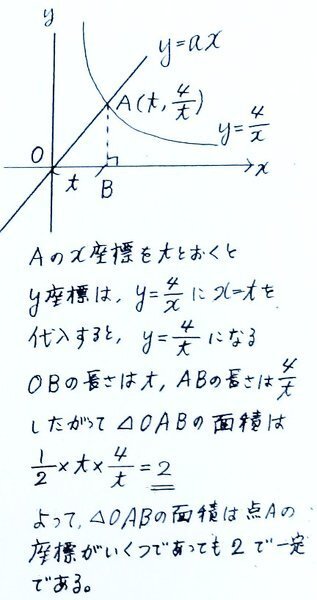 y
y=ax
A(t, 4/t)
y=4/x
O
t
B
x
Aのx座標をtとおくと
y座標は、y=4/xにx=tを
代入すると、y=4/tになる
OBの長さはt, ABの長さは4/t
したがって△OABの面積は
1/2×t×4/t=2
よって、△OABの面積は点Aの
座標がいくつであっても2で一定
である。